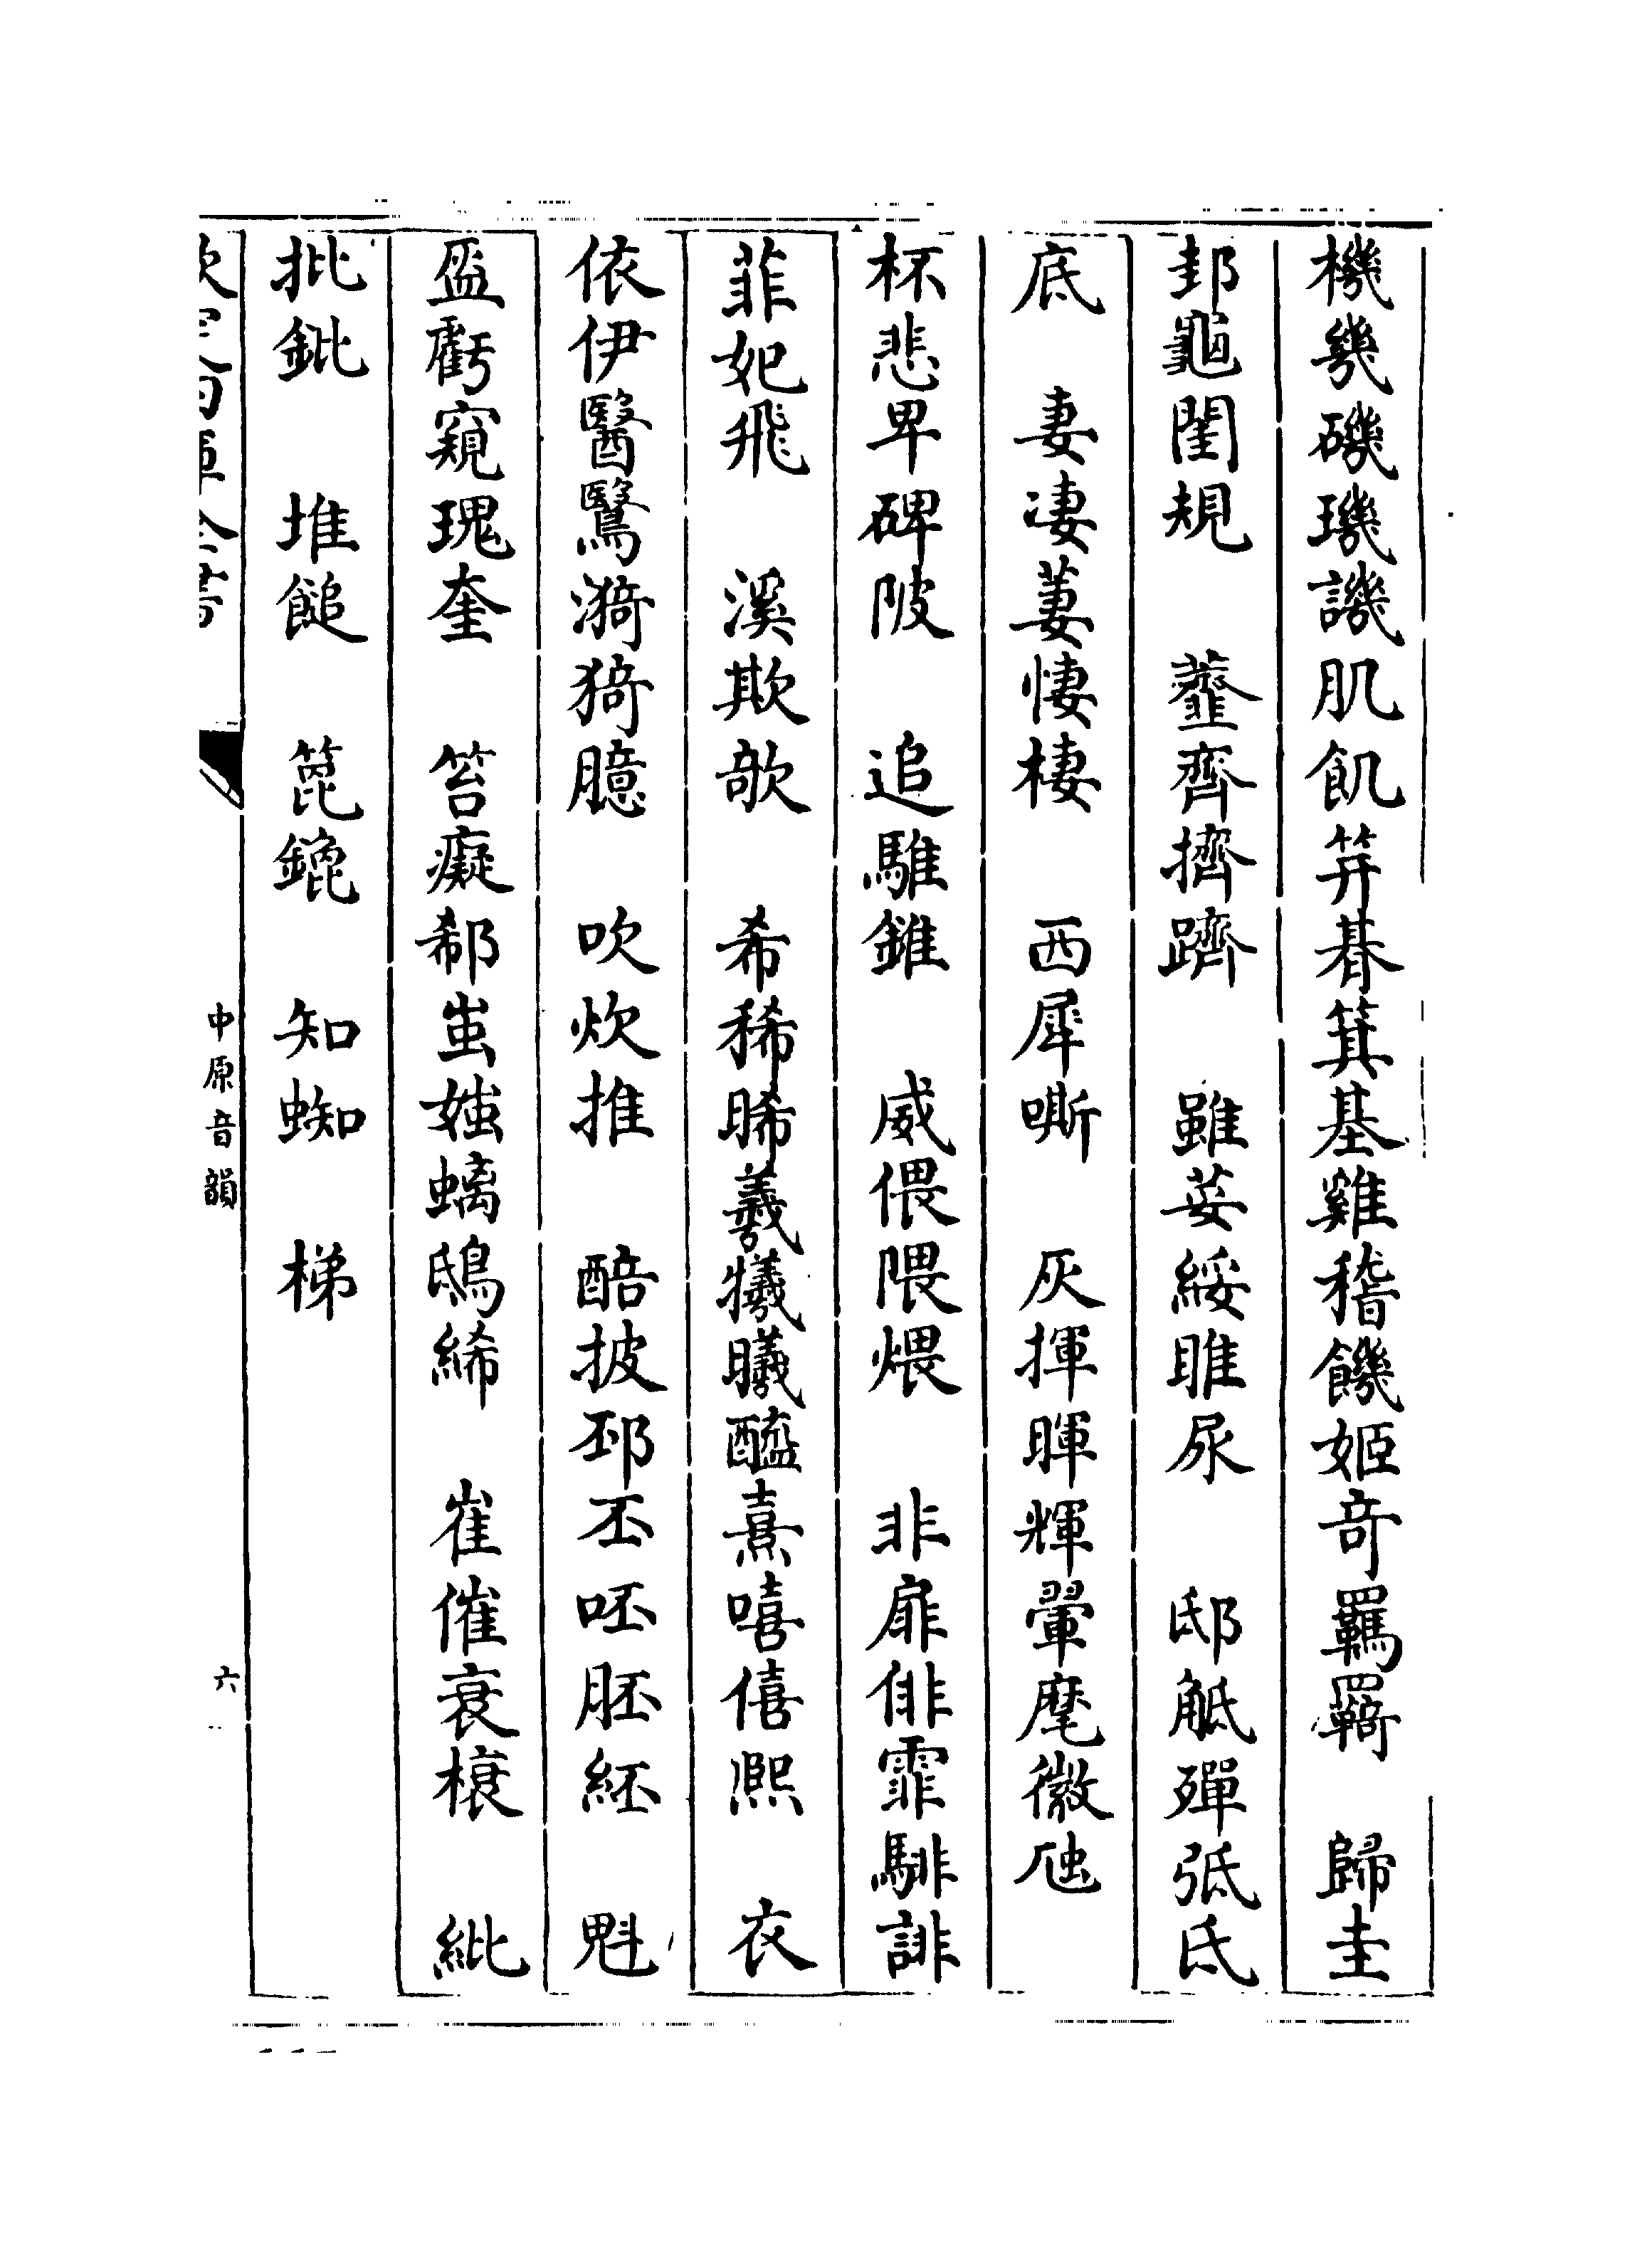 機幾磯璣譏肌飢筓朞箕基雞稽饑姬奇羈羇　歸圭
邽龜閨規　虀齊擠躋　雖荽綏睢尿　邸觝殫弤氐
底　妻凄萋悽棲　西犀嘶　灰揮暉輝翬麾徽虺
杯悲卑碑陂　追騅錐　威偎隈煨　非扉俳霏騑誹
菲妃飛　溪欺欹　希稀晞羲犧曦醯熹嘻僖熈　衣
依伊醫鷖漪猗臆　吹炊推　醅披邳丕呸胚紑　魁
盔虧窺瑰奎　笞癡郗蚩媸螭鴟絺　崔催衰榱　紕
批鈚　堆鎚　箆鎞　知蜘　梯
中原音韻
六